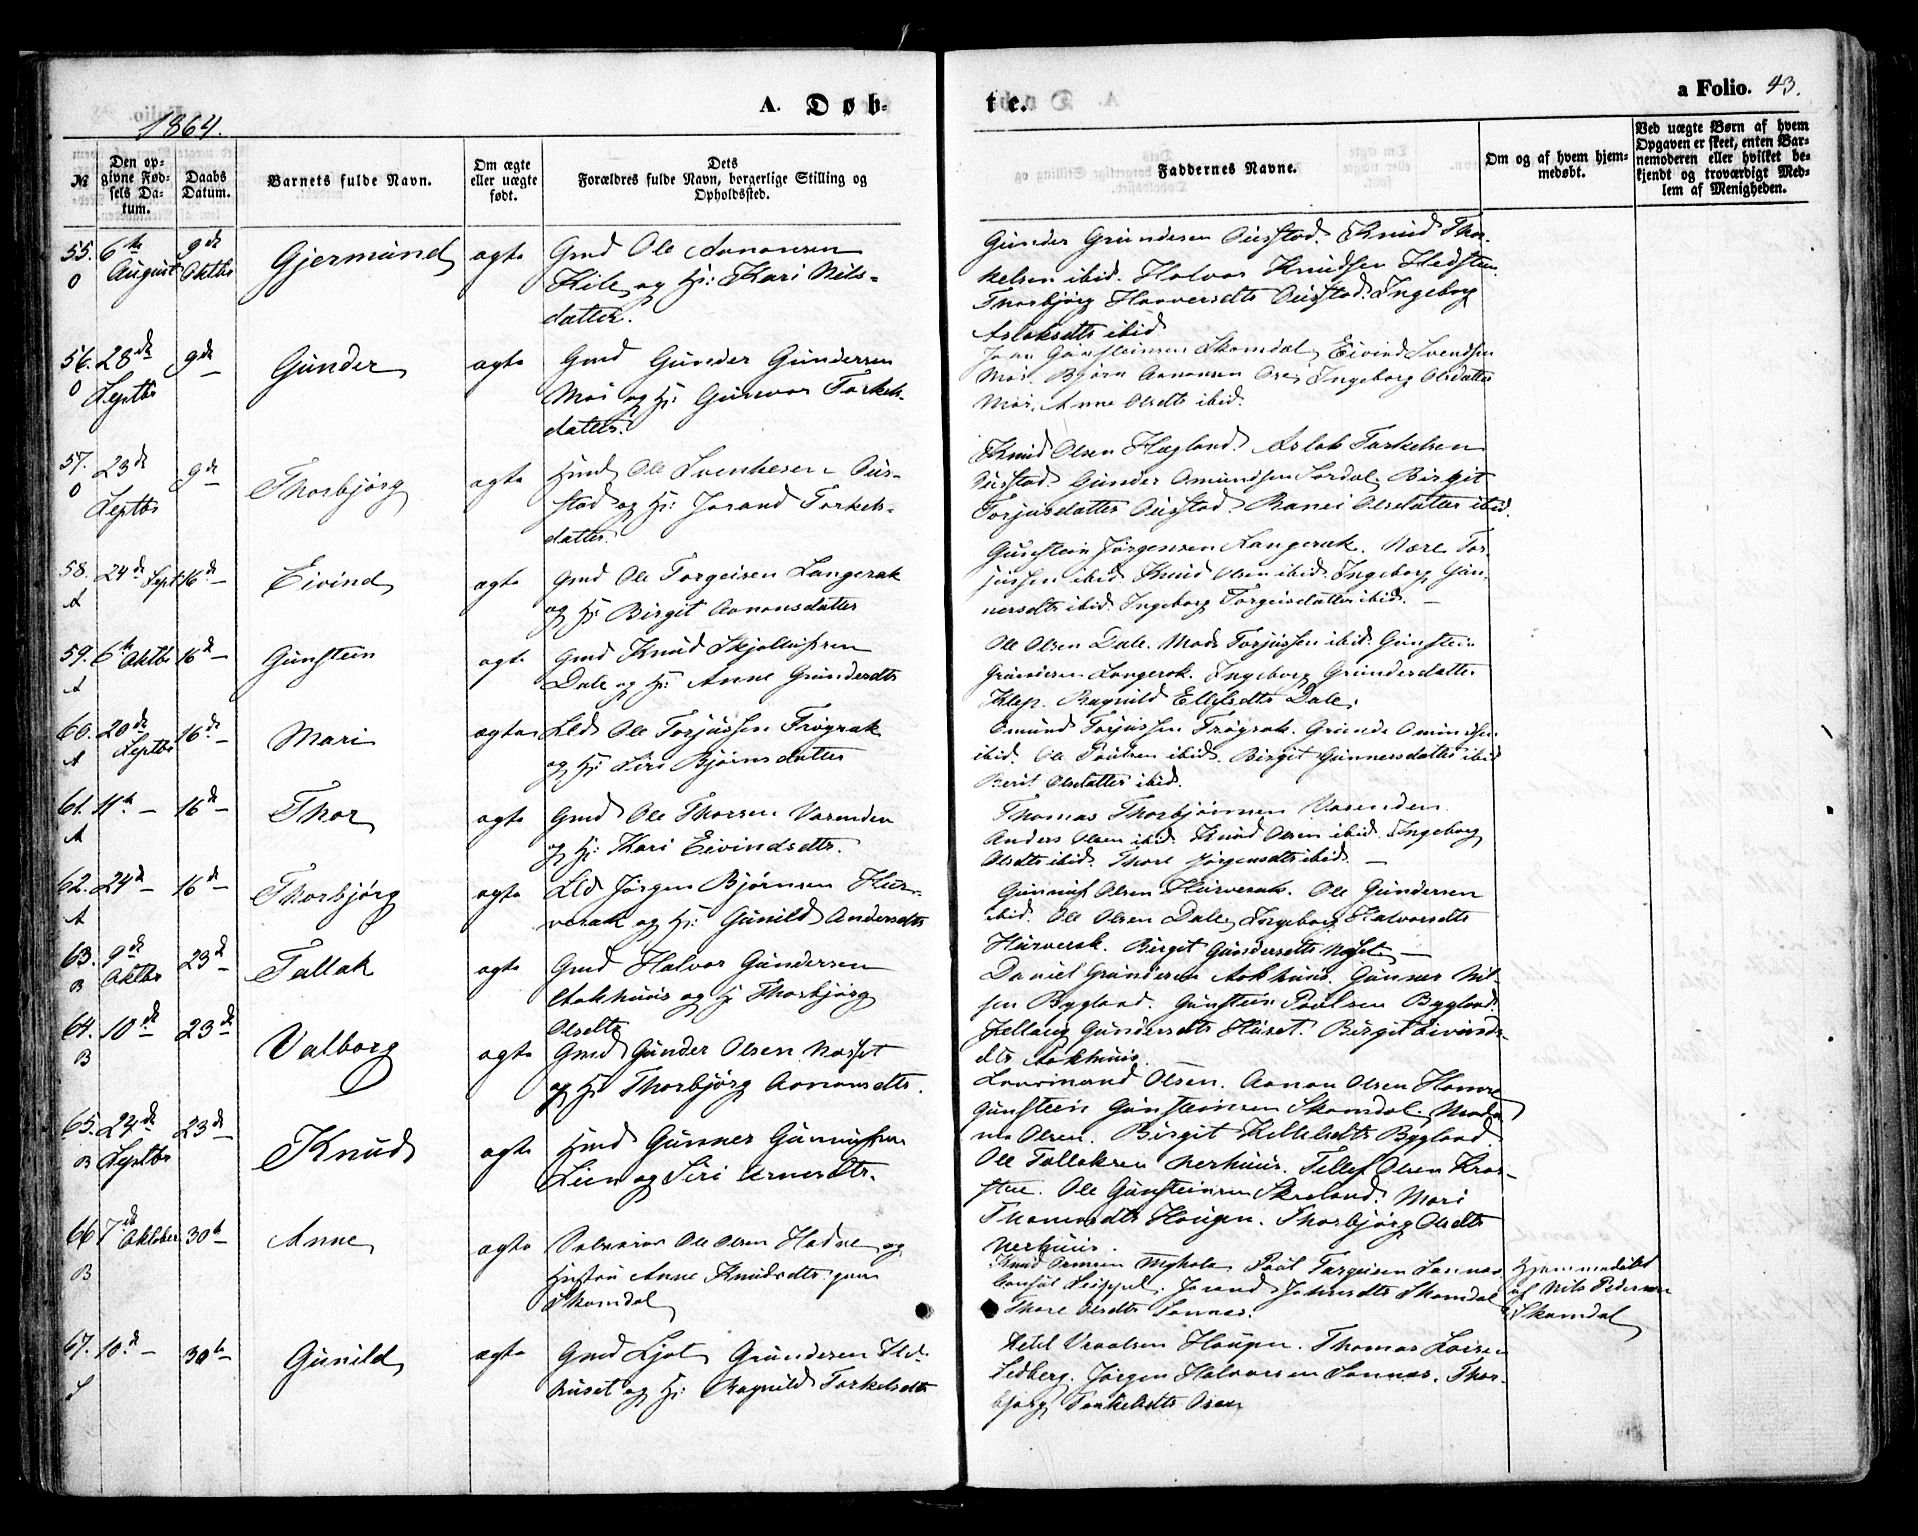 A. Døb-
te.
a Folio. 43.
1864.
№
Den op-
givne Fød-
sels Da-
tum.
Daabs
Datum.
Barnets fulde Navn.
Om ægte
eller uægte
født.
Dets
Forældres fulde Navn, borgerlige Stilling og
Opholdssted.
Faddernes Navne.
Om og af hvem hjem-
medøbt.
Ved uægte Børn af hvem
Opgaven er skeet, enten Bar-
nemoderen eller hvilket be-
kjendt og troværdigt Med-
lem af Menigheden.
55. 6te August 9de Oktbr Gjermund ægte Gmd Ole Aanonsen
Kile og H: Kari Nils-
datter.
Gunder Gundersen Ousstad. Knud Thor-
kelsen ibid. Halvor Knudsen Hedsteen.
Thorbjörg Haaversdtr Ousstad. Ingeborg
Aslaksdtr ibid
56. 28de Septbr 9de Gunder ægte Gmd Gunder Gundersen
Moi og H: Gunvor Torkels-
datter.
Gunsteinsen Skomdal, Eivind Svendsen
Moi. Bjørn Aanonsen Ose, Ingeborg Olsdatter
Moi, Anne Olsdtr ibid.
57. 23de Septbr 9de Thorbjörg ægte Hmd Ole Svenkesen Ous-
stad og H: Jorand Torkels-
datter.
Knud Olsen Hagland. Aslak Torkelsen
Ousstad. Gunder Omundsen Sordal. Birgit
Torjusdatter Ousstad. Ranei Olsdatter ibid.
58. 24de Sept 16de Eivind ægte Gmd Ole Torgeisen Langerak
og H: Birgit Aanonsdatter
Gunstein Jørgensen Langerak. Nære Tor-
jussen ibid Knud Olsen ibid. Ingeborg Gun-
nersdtr ibid. Ingeborg Torgeisdatter ibid. —
59. 6te Oktbr 16de Gunstein ægte Gmd Knud Skjollufsen
Dale og H: Anne Gundersdtr
Ole Olsen Dale. Mads Torjussen ibid. Gunstein
Gundersen Langerak. Ingeborg Gundersdatter
Klep. Ragnild Ellefsdtr Dale.
60. 20de Septbr 16de Mari ægte Lld Ole Torjussen Frøyrak
og H: Siri Bjørnsdatter
Omund Torjussen Frøyrak. Gunder Omundsen
ibid. Ole Poulsen ibid. Birgit Gunnersdatter ibid
Berit Olsdatter ibid.
61. 11te — 16de Thor ægte Gmd Ole Thorsen Vasenden
og H: Kari Eivindsdtr.
Thomas Thorbjörnsen Vasenden.
Anders Olsen ibid. Knud Olsen ibid. Ingeborg
Olsdtr ibid. Thore Jörgensdtr ibid. —
62. 24de — 16de Thorbjörg ægte Lld Jörgen Bjørnsen Hur-
verak og H: Gunild Andersdtr
Gunnuf Olsen Hurverak. Ole Gundersen
ibid. Ole Olsen Dale, Ingeborg Halvorsdtr
Hurverak. Birgit Gundersdtr Nesset. —
63. 9de Oktbr 23de Tallak ægte Gmd Halvor Gundersen
Aakhuus og H: Thorbjörg
Olsdtr
Daniel Gundersen Aakhuus. Gunner Nil-
sen Bygland. Gunstein Poulsen Bygland.
Gundersdtr Huset. Birgit Eivinds-
dtr Aakhuus.
64. 10de 23de Valborg ægte Gmd Gunder Olsen Nesset
og H: Thorbjörg Aanonsdtr.
Olsen. Aanon Olsen Hamre
Gunstein Gunsteinsen Skomdal. Mada-
me Olsen. Birgit Kittelsdtr Bygland.
65. 24de Septbr 23de Knud ægte Hmd Gunner Gunnufsen
Lien og Siri Arnesdtr.
Ole Tallaksen Nerhuus. Tellef Olsen
Ole Gunsteinsen Skreland. Mari
Thomesdtr Hougen. Thorbjörg Olsdtr
Nerhuus.
66 7de Oktober 30te Anne ægte Ole Olsen Hodne og
Hustru Anne Knudsdtr paa
Skomdal
Knud Poul Torgeisen Sonnes
Jorand Skomdal
Thore Olsdtr Sonnes.
Hjemmedöbt
af Nils Pedersen
Skomdal
67. 10de — 30te Gunild ægte Gmd Ljot Gundersen
huset og H: Ragnild Torkelsdtr
Ketil Hougen. Thomas
Jørgen Halvorsen Sonnes. Thor-
bjørg Torkelsdtr